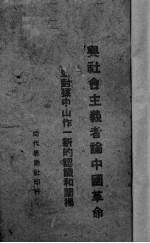 與社會主義者論中國革命
對孫中山作一新的認識和闡揚
社印行